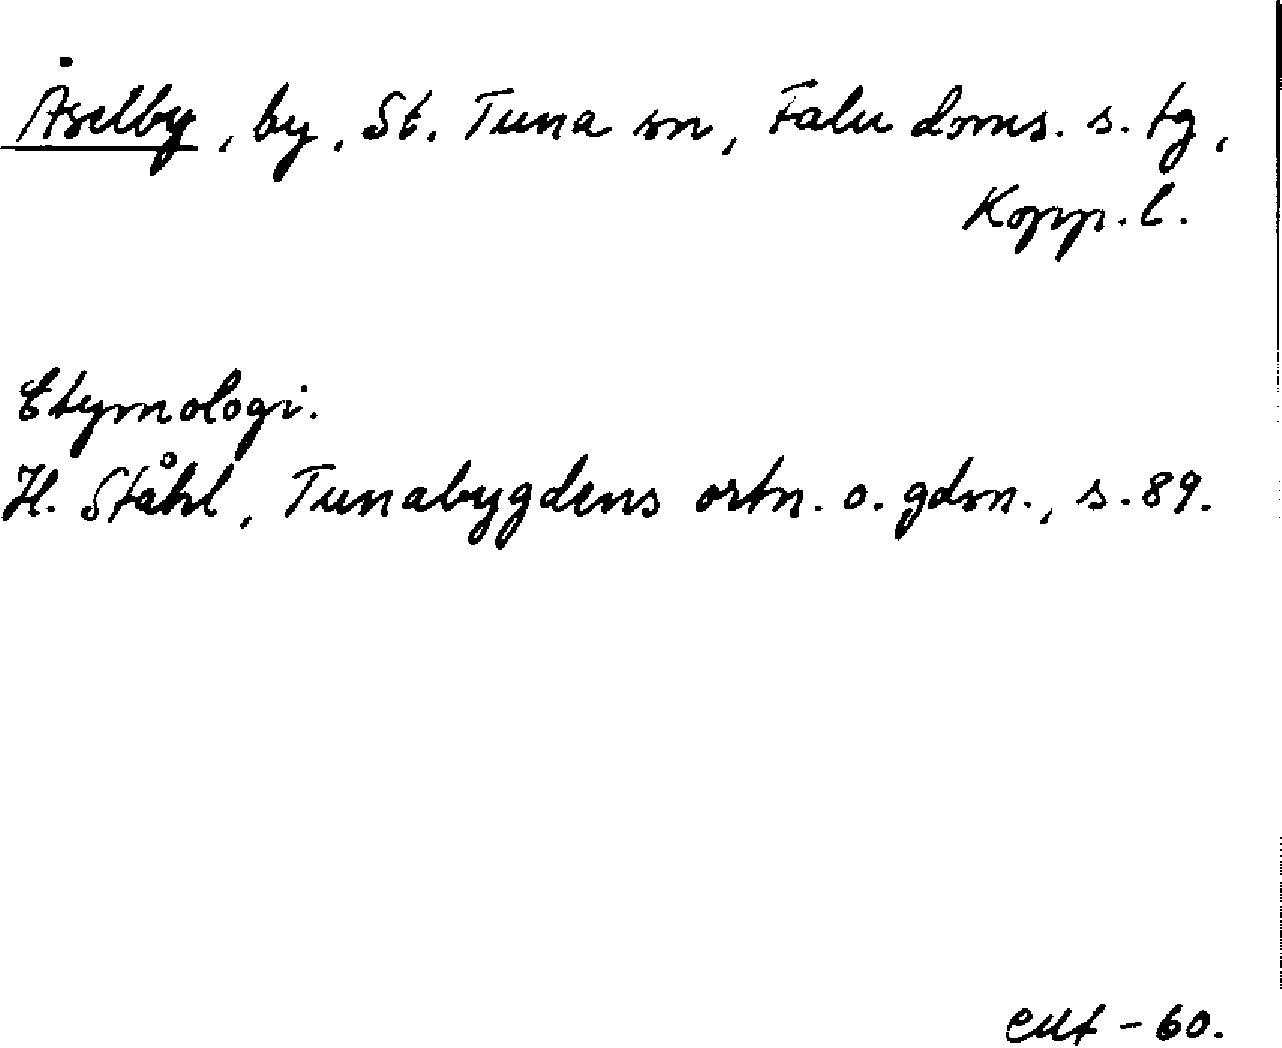 Åselby, by, St. Tuna sn, Falu doms. s. tg,
Kopp. l.
Etymologi.
H. Ståhl, Tunabygdens ortn. o. gdsn., s. 89.
-60.